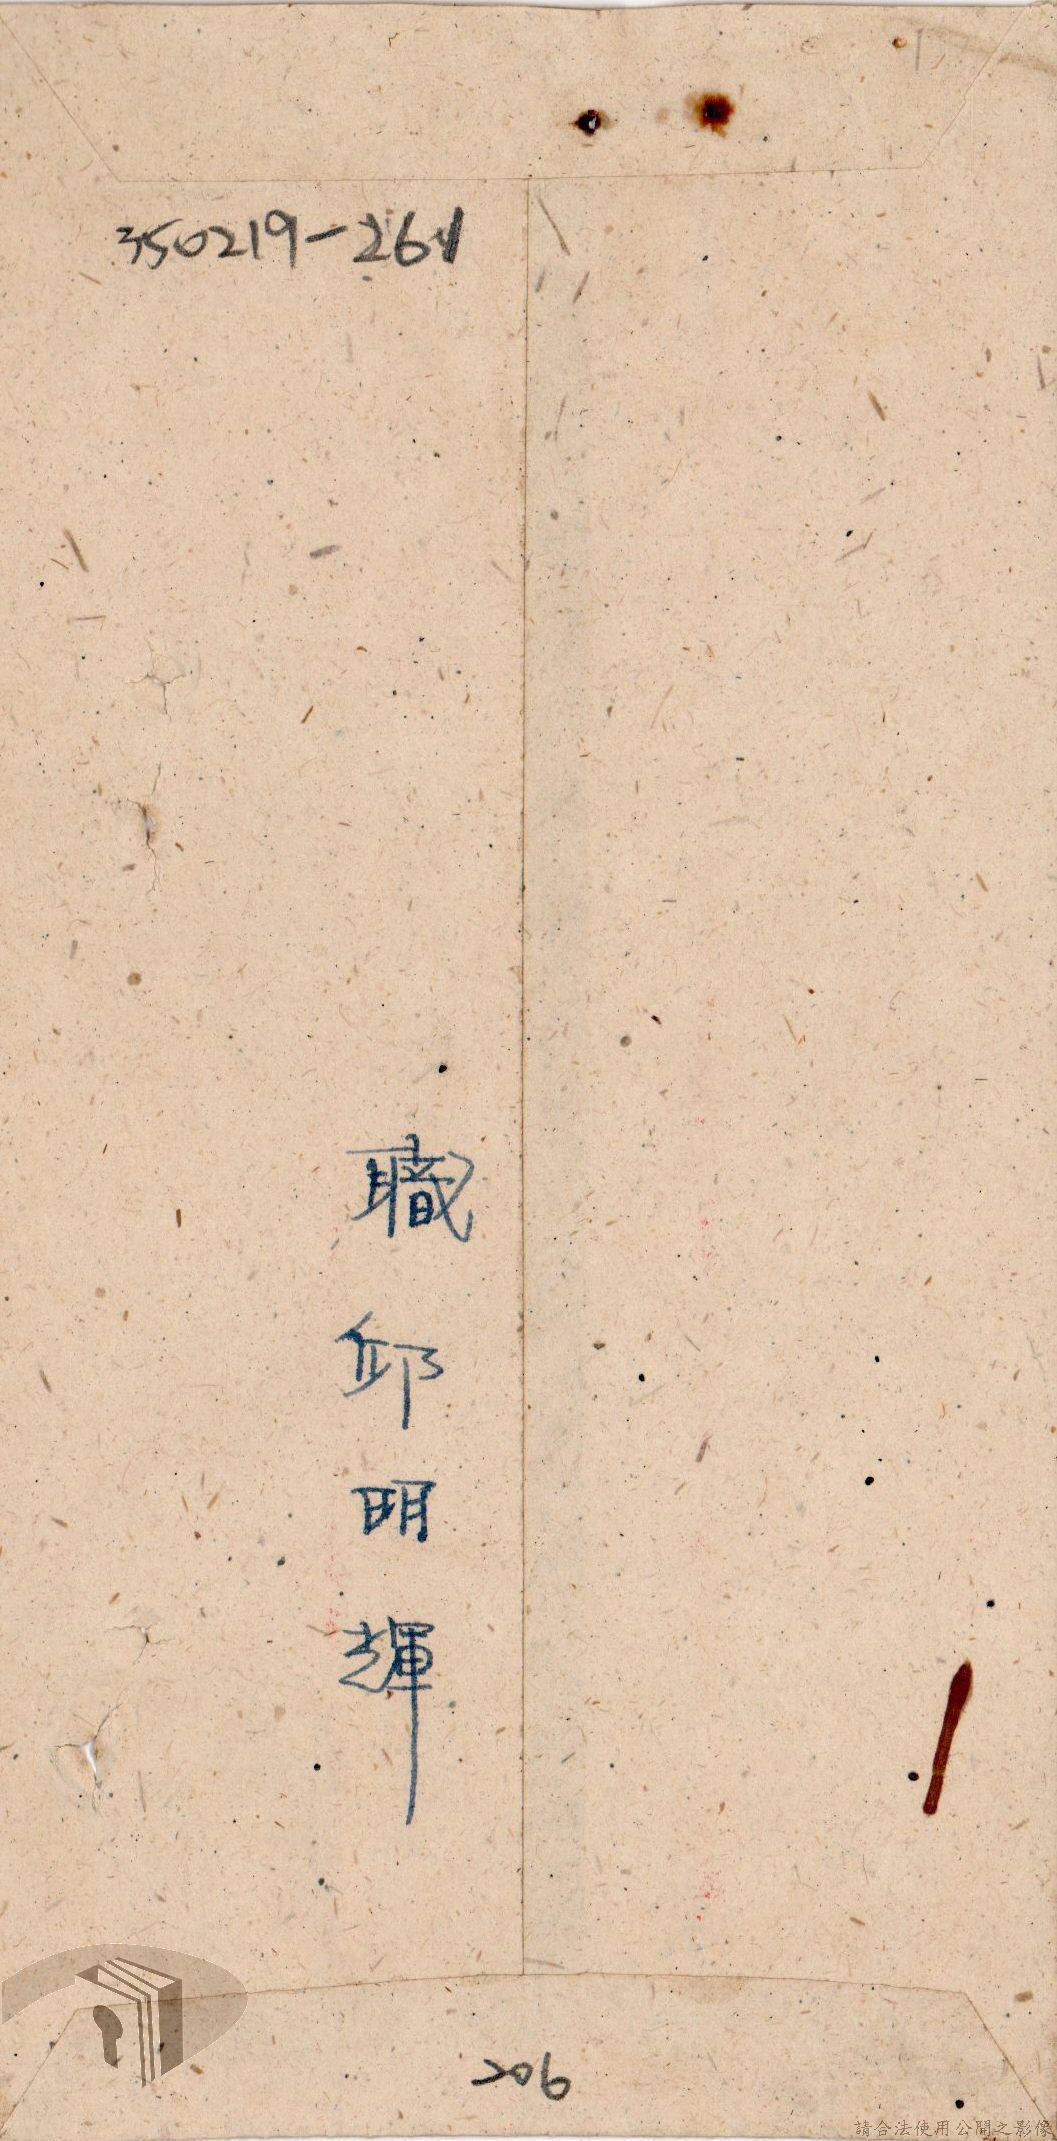 350219-261
職 邱明輝
206
請合法使用公開之影像